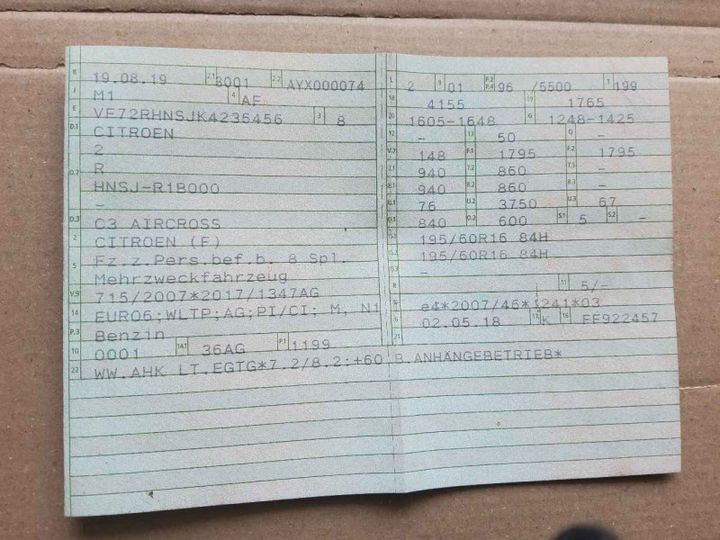 B 19.08.19 2.1 3001 2.2 AYX000074
J M1 4 AF
E VF72RHNSJK4236456 3 8
D.1 CITROEN
2
R
D.2 HNSJ-R1B000
-
D.3 C3 AIRCROSS
2 CITROEN (F)
5 Fz.z.Pers.bef.b. 8 Spl.
Mehrzweckfahrzeug
V.9 715/2007*2017/1347AG
14 EURO6;WLTP;AG;PI/CI; M, N1
P.3 Benzin
10 0001 14.1 36AG P.1 1199
22 WW.AHK LT.EGTG*7.2/8.2:+60 B.ANHÄNGEBETRIEB*
L 2 9 01 P.2 P.4 96 /5500 T 199
18 4155 19 1765
20 1605-1648 G 1248-1425
12 - 13 50 Q -
V.7 148 F.1 1795 F.2 1795
7.1 940 7.2 860 7.3 -
8.1 940 8.2 860 8.3 -
U.1 76 U.2 3750 U.3 67
O.1 840 O.2 600 S.1 5 S.2 -
15.1 195/60R16 84H
15.2 195/60R16 84H
15.3 -
R 11 5/-
K e4*2007/46*1241*03
6 02.05.18 17 K 16 FF922457
21